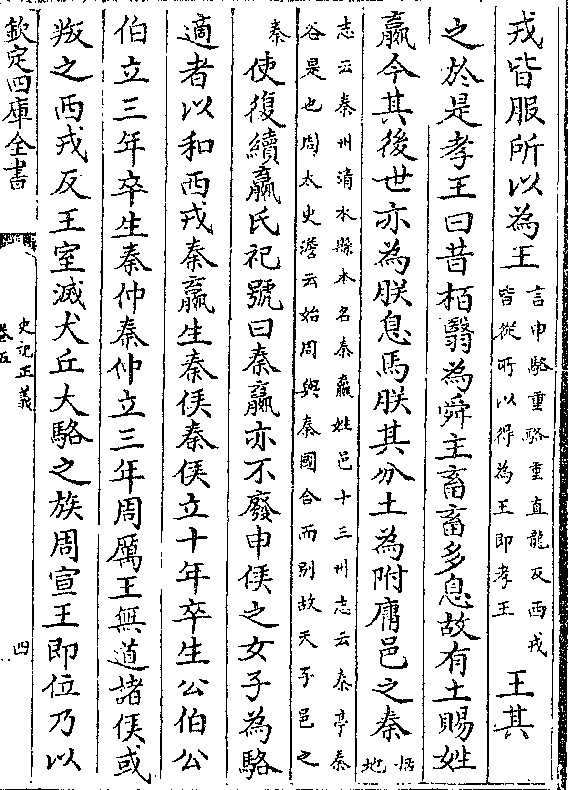 戎皆服所以為王言申駱重駱重直龍反西戎
皆從所以得為王即孝王王其
之於是孝王曰昔栢翳為舜主畜畜多息故有土賜姓
嬴今其後世亦為朕息馬朕其分土為附庸邑之秦括
地
志云秦州清水縣本名秦嬴姓邑十三州志云秦亭秦
谷是也周太史澹云始周與秦國合而別故天子邑之
秦使復續嬴氏祀號曰秦嬴亦不廢申侯之女子為駱
適者以和西戎秦嬴生秦侯秦侯立十年卒生公伯公
伯立三年卒生秦仲秦仲立三年周厲王無道諸侯或
叛之西戎反王室滅犬丘大駱之族周宣王即位乃以
欽定四庫全書
史記正義
卷五
四